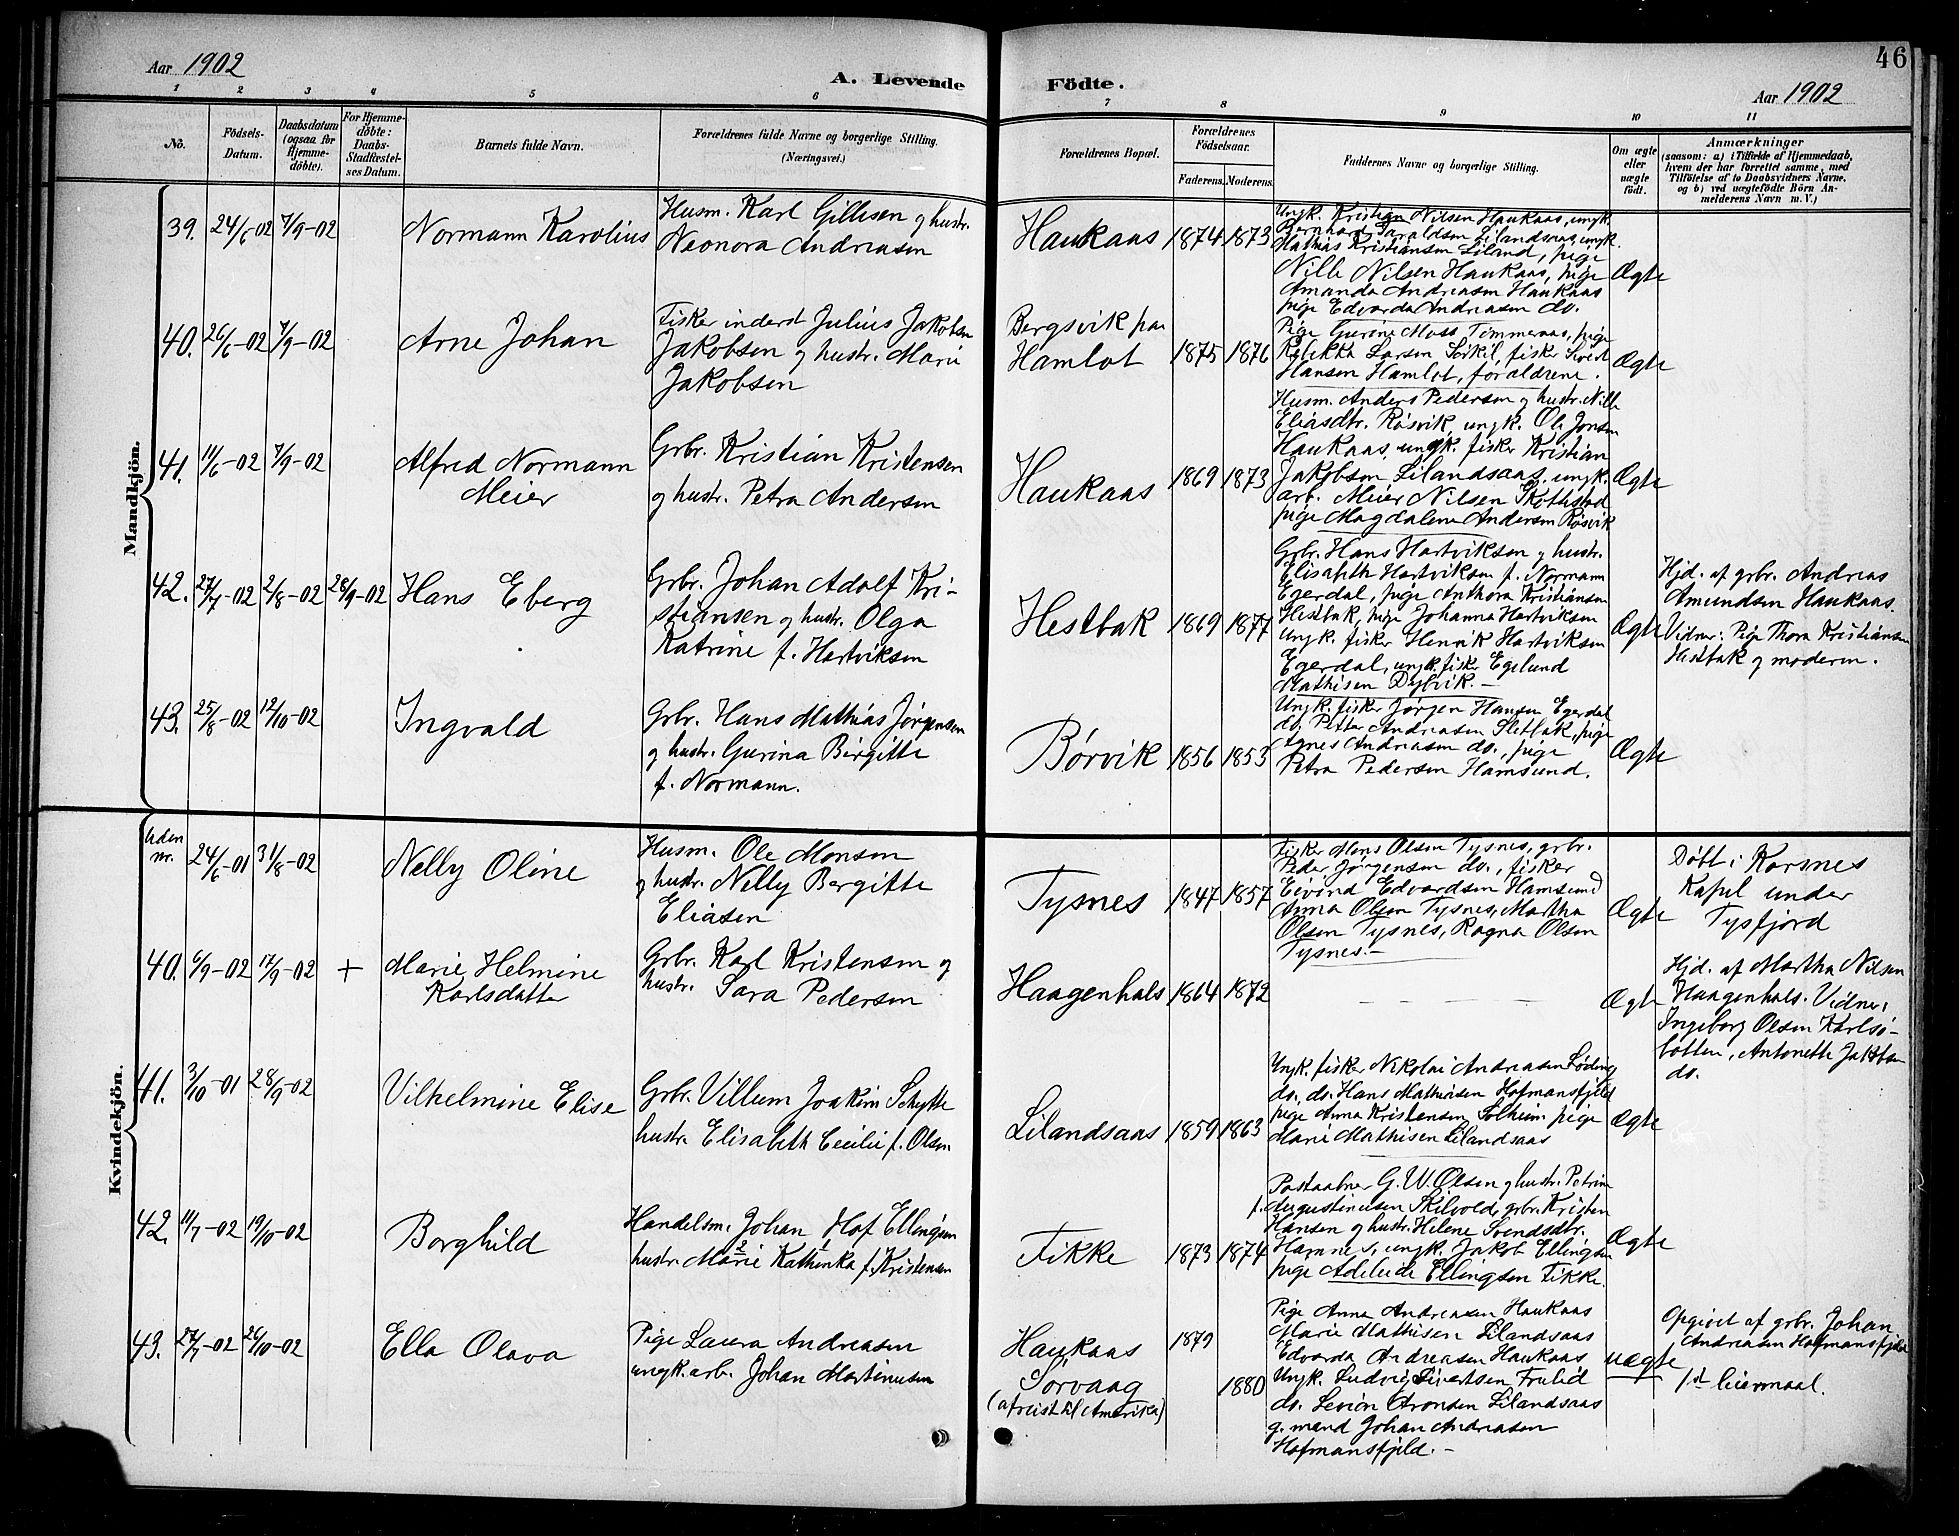 Aar 1902
A. Levende
Födte.
46
Aar 1902
1 2 3 4 5 6 7 8 9 10 11
No.
Födsels-
Datum.
Daabsdatum
(ogsaa for
Hjemme-
döbte).
For Hjemme-
döbte:
Daabs-
Stadfæstel-
ses Datum.
Barnets fulde Navn.
Forældrenes fulde Navne og borgerlige Stilling.
(Næringsvei.)
Forældrenes Bopæl.
Forældrenes
Födselsaar.
Faderens. Moderens.
Faddernes Navne og borgerlige Stilling.
Om ægte
eller
uægte
födt.
Anmærkninger
(saasom: a) i Tilfælde af Hjemmedaab,
hvem der har forrettet samme, med
Tilföielse af to Daabsvidners Navne,
og b) ved uægtefödte Börn An-
melderens Navn m. V.)
Mandkjön.
39. 24/6-02 7/9-02
Normann Karolius
Husm. Karl Gillesen og hustr.
Neonora Andreasen
Haukaas 1874 1873
Ungk. Kristian Nilsen Haukaas, ungk.
Bernhard Haraldsen Lilandsaas, ungk.
Mathias Kristiansen Liland, pige
Nille Nilsen Haukaas, pige
Amanda Andreasen Haukaas
pige Edvarda Andreasen do.
Ægte
40. 26/6-02 7/9-02
Arne Johan
Fisker inderst Julius Jakobsen
Jakobsen og hustr. Marie
Jakobsen
Bergsvik paa
Hamlot 1875 1876
Pige Gurine Moss Tømmeraas, pige
Rebekka Larsen Sørkil, fisker Sivert
Hansen Hamlot, forældrene.
Ægte
41. 11/6-02 7/9-02
Alfred Normann
Meier
Grbr. Kristian Kristensen
og hustr. Petra Andersen
Haukaas 1869 1873
Husm. Anders Pedersen og hustr. Nille
Eliasdtr. Røsvik, ungk. Ole Jonsen
Haukaas, ungk. fisker Kristian
Jakobsen Lilandsaas, ungk.
arb. Meier Nilsen Skottestad
pige Magdalene Andersen Røsvik
Ægte
42. 27/7-02 2/8-02 28/9-02
Hans Eberg
Grbr. Johan Adolf Kri-
stiansen og hustr. Olga
Katrine f. Hartviksen
Hestbak 1869 1877
Grbr. Hans Hartviksen og hustr.
Elisabeth Hartviksen f. Normann
Egerdal, pige Anthora Kristiansen
Hestbak, pige Johanna Hartviksen
ungk. fisker Henrik Hartviksen
Egerdal, ungk. fisker Egelund
Mathisen Dypvik.-
Ægte
Hjd. af grbr. Andreas
Amundsen Haukaas.
Vidner: Pige Thora Kristiansen
Hestbak og moderen.
43. 25/8-02 12/10-02
Ingvald
Grbr. Hans Mathias Jørgensen
og hustr. Gurina Birgitte
f. Normann.
Børvik 1856 1853
Ungk. fisker Jørgen Hansen Egerdal
do. Petter Andreasen Sletbak, pige
Agnes Andreasen do., pige
Petra Pedersen Hamsund.
Ægte
Kvindekjön.
Uden
nr. 24/6-01 31/8-02
Nelly Oline
Husm. Ole Monsen
og hustr. Nelly Bergitte
Eliasen
Tysnes 1847 1857
Fisker Mons Olsen Tysnes, grbr.
Peder Jørgensen do., fisker
Eivind Edvardsen Hamsund
Anna Olsen Tysnes, Martha
Olsen Tysnes, Ragna Olsen
Tysnes.-
Ægte
Døbt i Korsnes
Kapel under
Tysfjord
40. 6/9-02 17/9-02 +
Marie Helmine
Karlsdatter
Grbr. Karl Kristensen og
hustr. Sara Pedersen
Haagenhals 1864 1872
Ægte
Hjd. af Martha Nilsen
Haagenhals. Vidner:
Ingeborg Olsen Karlsø-
botten, Antonette Jakobsen
do.
41. 3/10-01 28/9-02
Vilhelmine Elise
Grbr. Villum Joakim Schytte
hustr. Elisabeth Cecilie f. Olsen
Lilandsaas 1859 1863
Ungk. fisker Nikolai Andreasen Løding
do. do. Hans Mathisen Hofmansfjeld
pige Anna Kristensen Solheim, pige
Marie Mathisen Lilandsaas
Ægte
42. 11/7-02 19/10-02
Borghild
Handelsm. Johan Hof Ellingsen
hustr. Marie Kathinka f. Kristensen
Fikke 1873 1874
Postaabner G. W. Olsen og hustr. Petrine
f. Augustinusen Skilvold, grbr. Kristen
Hansen og hustr. Helene Svendsdtr.
Hamnes, ungk. Jakob Ellingsen
pige Adeleide Ellingsen Fikke.
Ægte
43. 27/7-02 26/10-02
Ella Olava
Pige Laura Andreasen
ungk. arb. Johan Martinusen
Haukaas 1879
Sørvaag
(afreist til Amerika) 1880
Pige Anna Andreasen Haukaas
Marie Mathisen Lilandsaas
Edvarda Andreasen Haukaas
Ungk. Ludvig Sivertsen
do. Levion Aronsen Lilandsaas
g. mand Johan Andreasen
Hofmansfjeld.-
uægte
Opgivet af grbr. Johan
Andreasen Hofmansfjeld
1ste leiermaal.